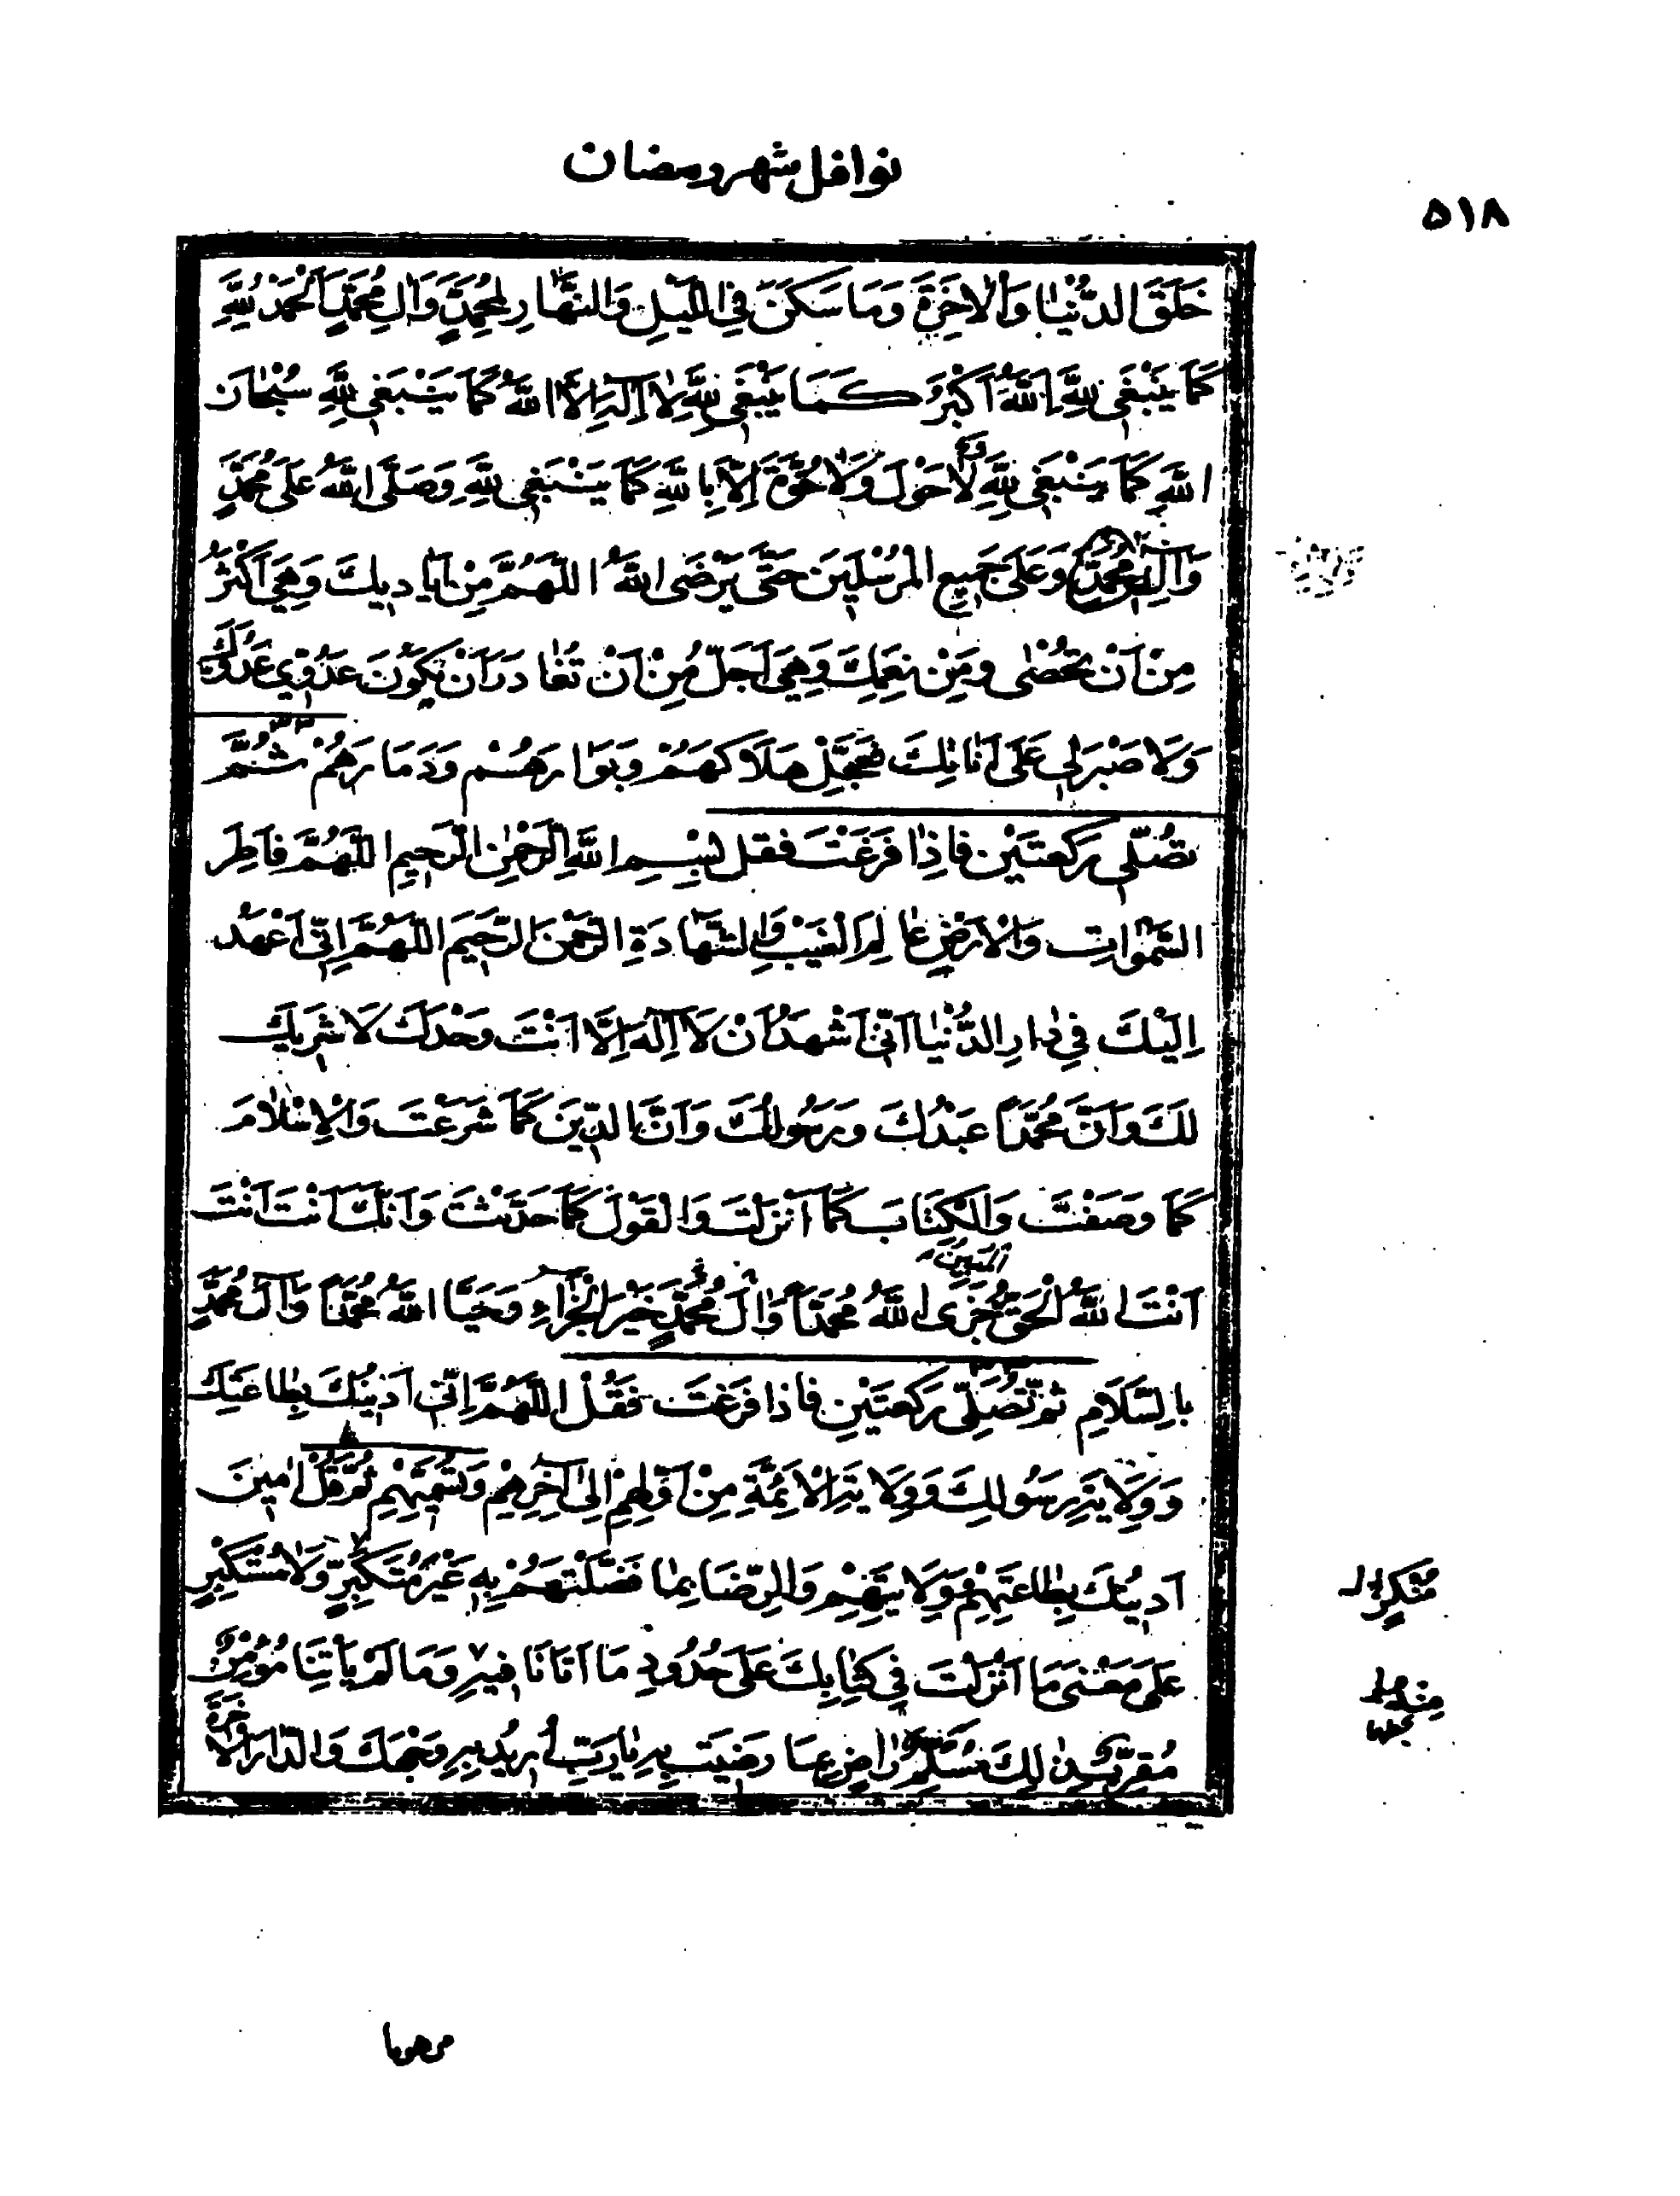 نوافل شهر رمضان
۵۱۸
خَلَقَ الدُّنْيٰا وَالْاٰخِرَةَ وَمَا سَكَنَ فِى اللَّيْلِ وَالنَّهٰارِ لِمُحَمَّدٍ وَاٰلِ مُحَمَّدٍ اَلْحَمْدُ لِلّٰهِ
كَمٰا يَنْبَغى لِلّٰهِ اَللّٰهُ اَكْبَرُ كَمَا يَنْبَغى لِلّٰهِ لٰا اِلٰهَ اِلَّا اللّٰهُ كَمٰا يَنْبَغى لِلّٰهِ سُبْحٰانَ
اللّٰهِ كَمٰا يَنْبَغى لِلّٰهِ لٰا حَوْلَ وَلٰا قُوَّةَ اِلَّا بِاللّٰهِ كَمٰا يَنْبَغى لِلّٰهِ وَصَلَّى اللّٰهُ عَلىٰ مُحَمَّدٍ
وَاٰلِ مُحَمَّدٍ وَعَلىٰ جَميعِ الْمُرْسَلينَ حَتّٰى يَرْضَى اللّٰهُ اللّٰهُمَّ مِنْ اَياديكَ وَهِىَ اَكْثَرُ
مِنْ اَنْ تُحْصٰى وَمِنْ نِعَمِكَ وَهِىَ اَجَلُّ مِنْ اَنْ تُغٰادَرَ اَنْ يَكُونَ عَدُوّى عَدُوَّكَ
وَلٰا صَبْرَ لى عَلىٰ اَنٰاتِكَ فَعَجِّلْ هَلٰاكَهُمْ وَبَوٰارَهُمْ وَدَمَارَهُمْ ثُمَّ
تُصَلّى رَكْعَتَيْنِ فَاِذٰا فَرَغْتَ فقل بِسْمِ اللّٰهِ الرَّحْمٰنِ الرَّحيمِ اللّٰهُمَّ فٰاطِرَ
السَّمٰوٰاتِ وَالْاَرْضِ عٰالِمَ الْغَيْبِ وَالشَّهٰادَةِ الرَّحْمٰنَ الرَّحيمَ اللّٰهُمَّ اِنّى اَعْهَدُ
اِلَيْكَ فى دٰارِ الدُّنْيٰا اَنّى اَشْهَدُ اَنْ لٰا اِلٰهَ اِلَّا اَنْتَ وَحْدَكَ لٰا شَريكَ
لَكَ وَاَنَّ مُحَمَّداً عَبْدُكَ وَرَسُولُكَ وَاَنَّ الدّينَ كَمٰا شَرَعْتَ وَالْاِسْلٰامَ
كَمٰا وَصَفْتَ وَالْكِتٰابَ كَمٰا اَنْزَلْتَ وَالْقَوْلَ كَمٰا حَدَّثْتَ وَاَنَّكَ اَنْتَ اَنْتَ
المُبينُ
اَنْتَ اللّٰهُ الْحَقُّ جَزَى اللّٰهُ مُحَمَّداً وَاٰلَ مُحَمَّدٍ خَيْرَ الْجَزٰاءِ وَحَيَّا اللّٰهُ مُحَمَّداً وَاٰلَ مُحَمَّدٍ
بِالسَّلَامِ ثُمَّ تُصَلّى رَكْعَتَيْنِ فَاذا فَرَغْتَ فَقُلْ اللّٰهُمَّ اِنّى اَدينُكَ بِطٰاعَتِكَ
وَوِلٰايَةِ رَسُولِكَ وَوِلٰايَةِ الْاَئِمَّةِ مِنْ اَوَّلِهِمْ اِلىٰ اٰخِرِهِمْ وَتُسَمّيهِمْ ثُمَّ قُلْ اٰمينَ
اَدينُكَ بِطٰاعَتِهِمْ وَوِلٰايَتِهِمْ وَالرِّضَا بِمٰا فَضَّلْتَهُمْ بِهِ غَيْرَ مُتَكَبِّرٍ وَلٰا مُسْتَكْبِرٍ
عَلىٰ مَعْنىٰ مَا اَنْزَلْتَ فى كِتٰابِكَ عَلىٰ حُدُودِ مَا اَتٰانَا فيهِ وَمَا لَمْ يَأْتِنَا مُؤْمِنٌ
مُقِرٌّ بِذٰلِكَ مُسَلِّمٌ رٰاضٍ بِمٰا رَضيتَ بِهِ يٰا رَبِّ اُريدُ بِهِ وَجْهَكَ وَالدّٰارَ الْاٰخِرَةَ